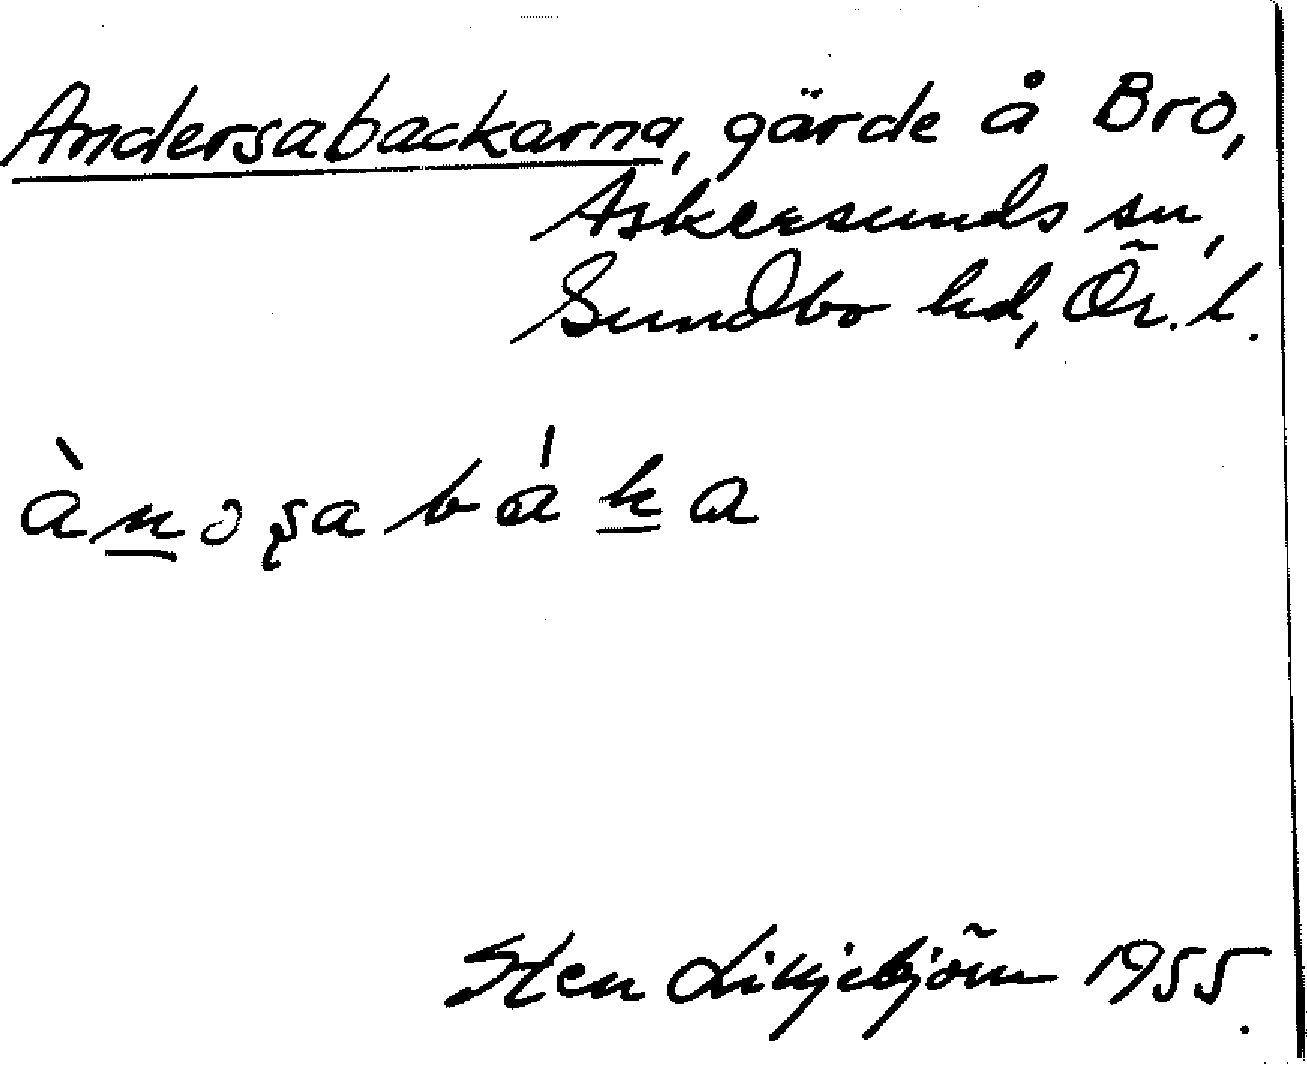 Andersabackarna, gärde å Bro,
Askersunds sn,
Sundbo hd, Ör. l.
ànɔʂabáka
Sten Liljebjörn 1955.